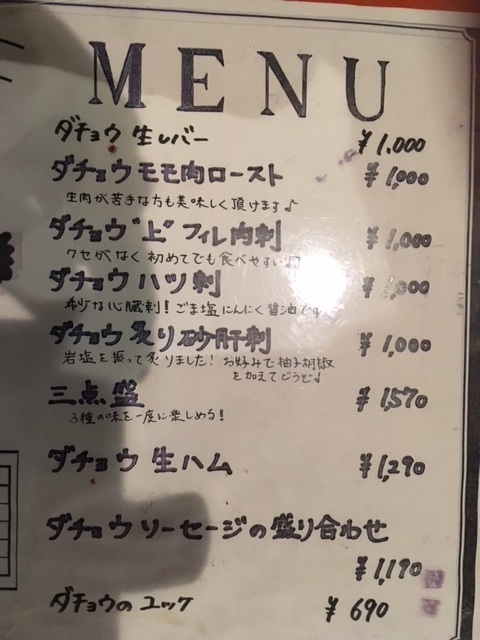 MENU
ダチョウ 生レバー ¥1.000
ダチョウモモ肉ロースト ¥1,000
生肉が苦手な方も美味しく頂けます♪
ダチョウ"上"フィレ肉刺 ¥1,000
クセがなく初めてでも食べやすい
ダチョウ ハツ刺 ,000
な心臓刺！ごま塩にんにく醤油で
ダチョウ 炙り砂肝刺 ¥1,000
岩塩を振って炙りました！お好みで柚子胡椒
を加えてどうぞ♪
三点盛 ¥1,570
3種の味を一度に楽しめる！
ダチョウ 生ハム ¥1,290
ダチョウソーセージの盛り合わせ
¥1,190
ダチョウのユッケ ¥690